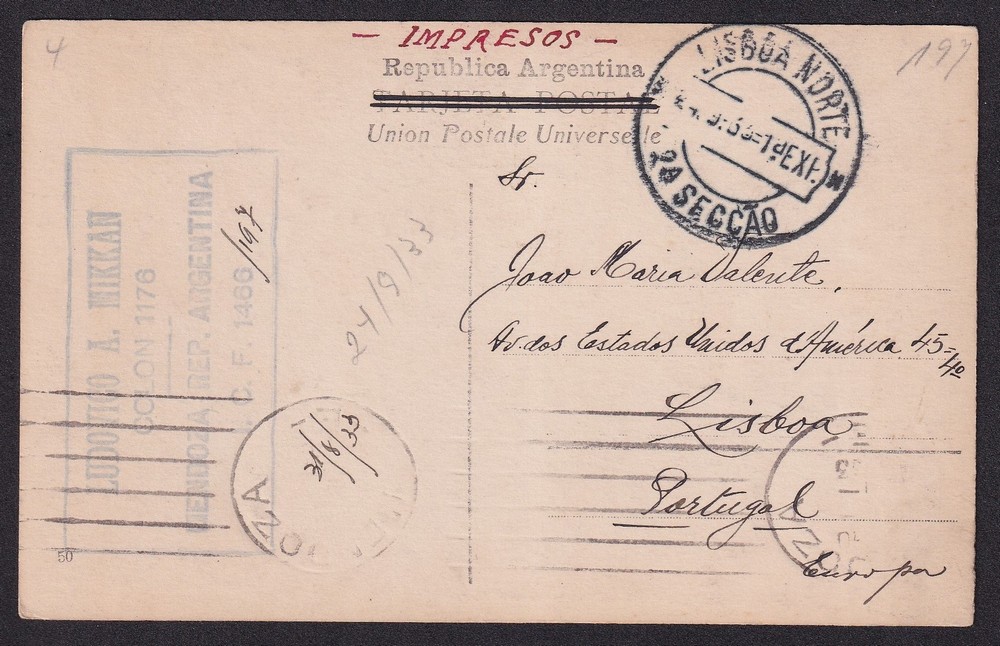 4
197
— IMPRESOS —
Republica Argentina
TARJETA POSTAL
Union Postale Universelle
LISBOA NORTE
2ª SECCÃO
Sr.
Joao Maria Valente,
Av. dos Estados Unidos d'América 45-4º
Lisboa
Portugal
Europa
LUDOVICO A. MIKKAN
COLON 1176
MENDOZA REP. ARGENTINA
C. F. 1466
/197
24/9/33
31/8/33
50